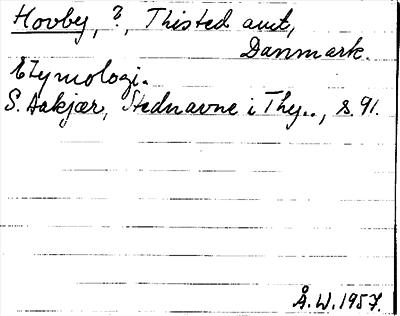 Hovby, ?, Thisted amt,
Danmark.
Etymologi.
S. Aakjær, Stednavne i Thy.., s. 91.
Å. W. 1957.